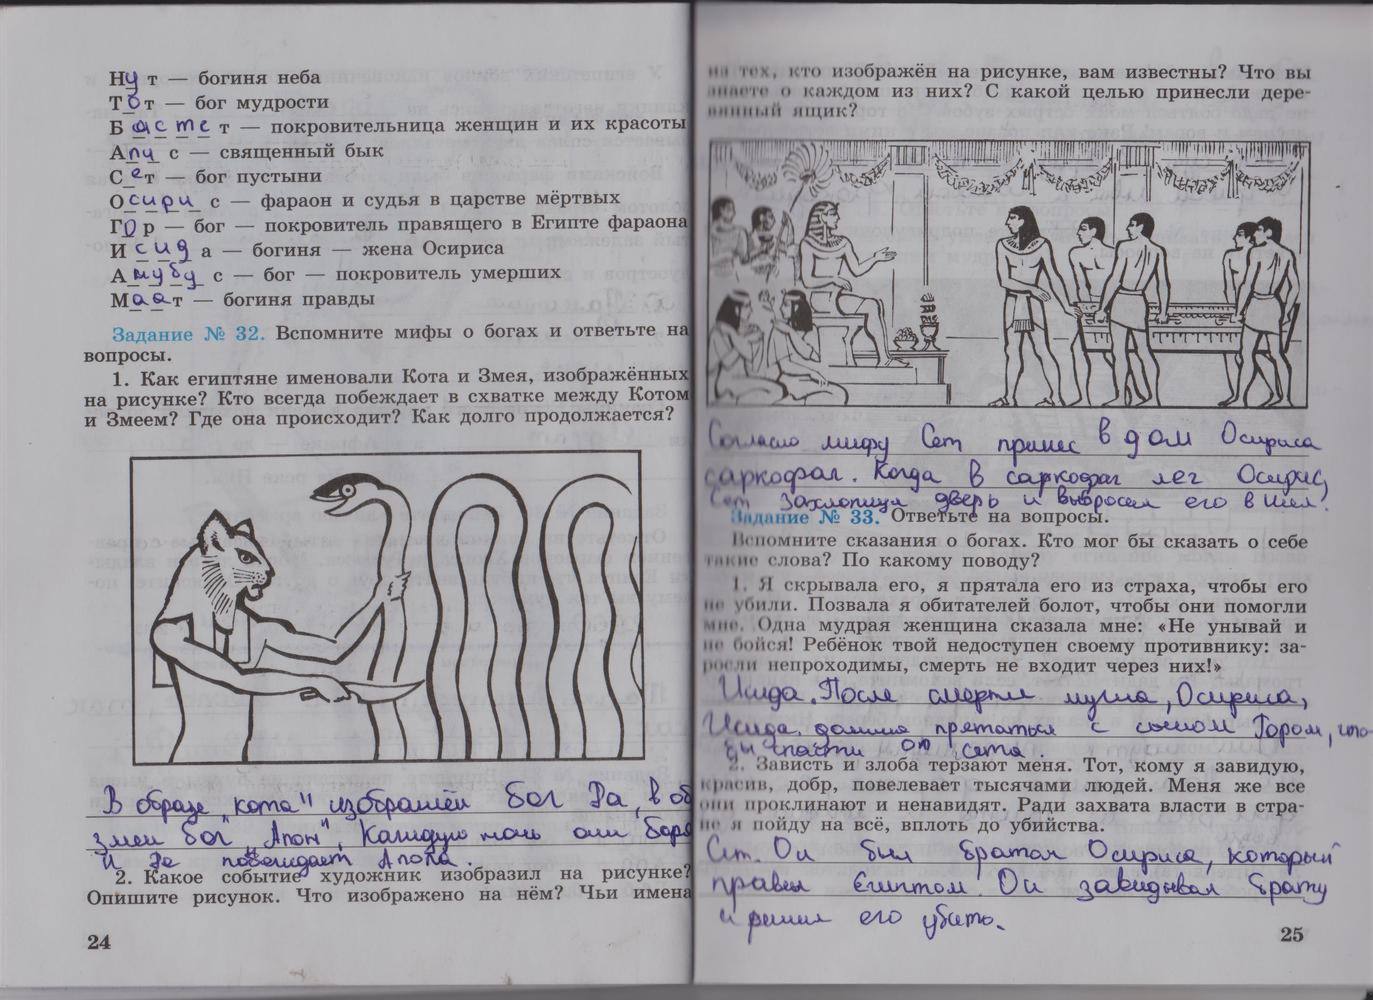 Нут — богиня неба
Тот — бог мудрости
Бастет — покровительница женщин и их красоты
Апис — священный бык
Сет — бог пустыни
Осирис — фараон и судья в царстве мёртвых
Гор — бог — покровитель правящего в Египте фараона
Исида — богиня — жена Осириса
Анубис — бог — покровитель умерших
Маат — богиня правды
Задание № 32. Вспомните мифы о богах и ответьте на
вопросы.
1. Как египтяне именовали Кота и Змея, изображённых
на рисунке? Кто всегда побеждает в схватке между Котом
и Змеем? Где она происходит? Как долго продолжается?
В образе "кота" изображён бог Ра, в об
змеи бог "Апоп". Каждую ночь они боря
и Ра побеждает Апопа.
2. Какое событие художник изобразил на рисунке?
Опишите рисунок. Что изображено на нём? Чьи имена
24
из тех, кто изображён на рисунке, вам известны? Что вы
знаете о каждом из них? С какой целью принесли дере-
вянный ящик?
Согласно мифу Сет принес в дом Осириса
саркофаг. Когда в саркофаг лег Осирис,
Сет захлопнул дверь и выбросил его в Нил.
Задание № 33. Ответьте на вопросы.
Вспомните сказания о богах. Кто мог бы сказать о себе
такие слова? По какому поводу?
1. Я скрывала его, я прятала его из страха, чтобы его
не убили. Позвала я обитателей болот, чтобы они помогли
мне. Одна мудрая женщина сказала мне: «Не унывай и
не бойся! Ребёнок твой недоступен своему противнику: за-
росли непроходимы, смерть не входит через них!»
Исида. После смерти мужа, Осириса,
Исида должна прятаться с сыном Гором, что
бы спасти от сета.
2. Зависть и злоба терзают меня. Тот, кому я завидую,
красив, добр, повелевает тысячами людей. Меня же все
они проклинают и ненавидят. Ради захвата власти в стра-
не я пойду на всё, вплоть до убийства.
Сет. Он был братом Осириса, который
правил Египтом. Он завидывал брату
и решил его убить.
25